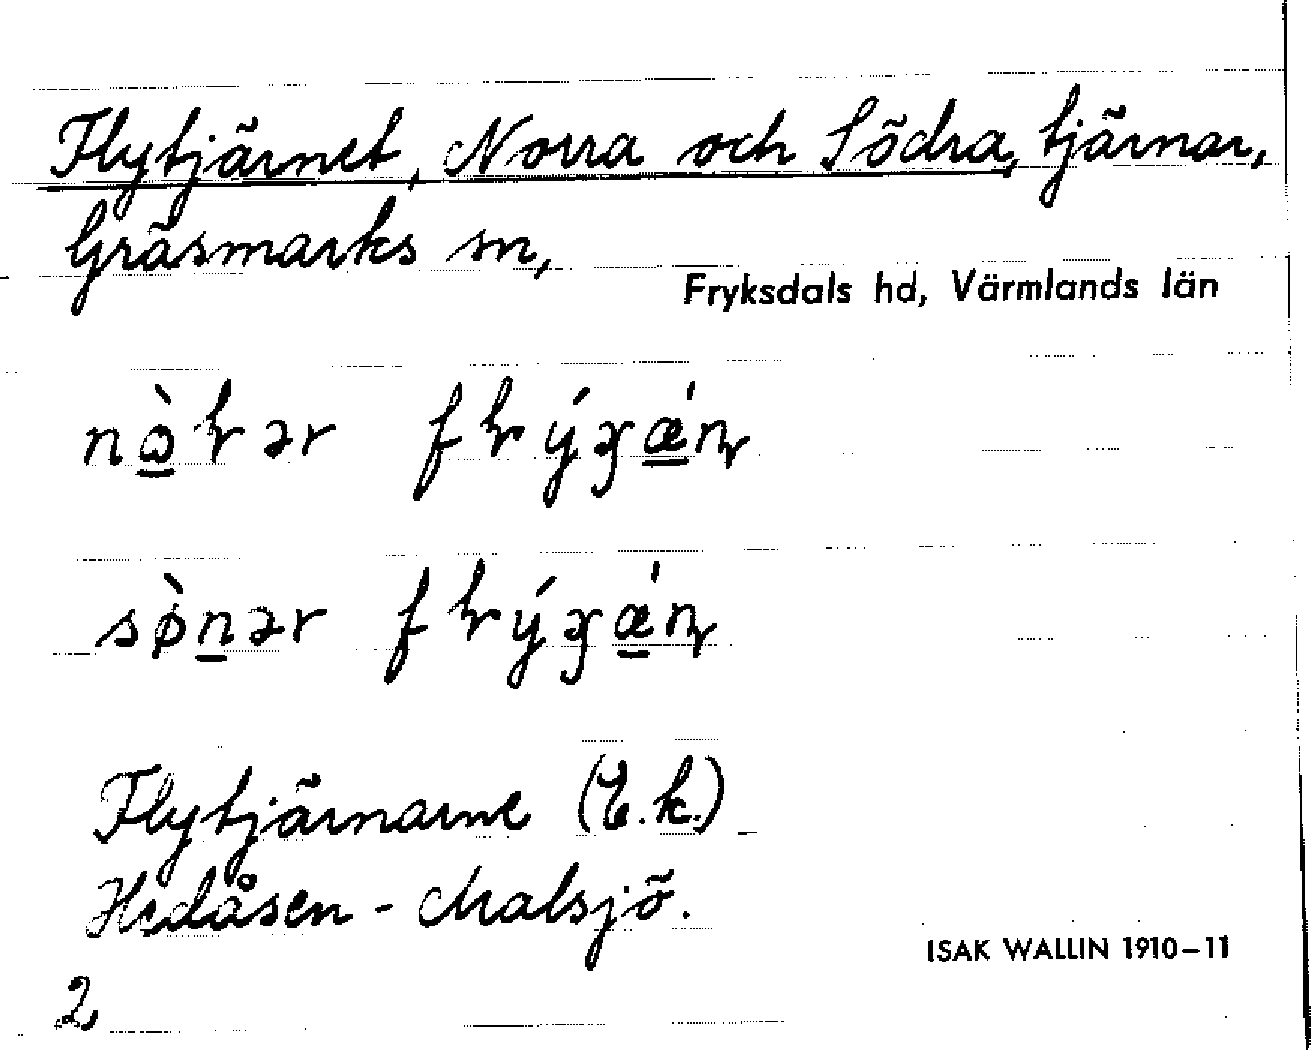 Flytjärnet, Norra och Södra, tjärnar,
Gräsmarks sn,
Fryksdals hd, Värmlands län
Flytjärnarne (E.k.)
Hedåsen - Malsjö.
ISAK WALLIN 1910-11
2